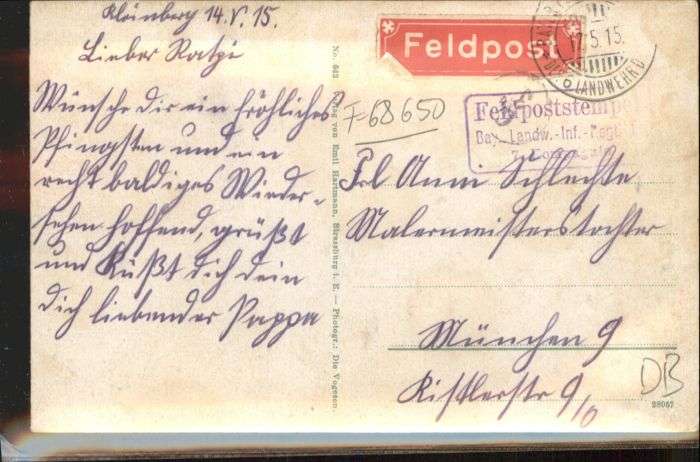 14.V.15.
Lieber Ratzi
Wünsche dir ein fröhliches
Pfingsten und ein
recht baldiges Wieder-
sehen hoffend, grüßt
und küßt dich dein
dich liebender Pappa
No. 663 Verlag von Emil Hartmann, i. E. — Photogr.: Die Vogesen.
Feldpost
17.5.15.
LANDWEHRD
Feldpoststemp
Bay. Landw.-Inf.-Reg
F-68650
Frl Anni Schlechte
Malermeisterstochter
München 9
Kistlerstr 9/0
DB
28067